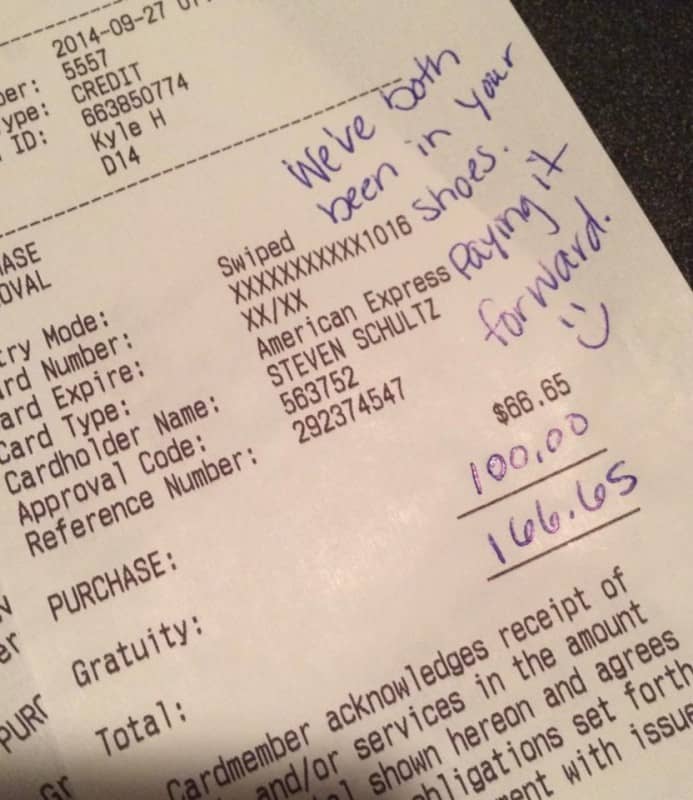 2014-09-27
ber: 5557
ype: CREDIT
ID: 663850774
Kyle H
D14
We've both
been in your
shoes.
Paying it
forward.
:)
HASE
OVAL
try Mode: Swiped
rd Number: XXXXXXXXXXX1016
ard Expire: XX/XX
Card Type: American Express
Cardholder Name: STEVEN SCHULTZ
Approval Code: 563752
Reference Number: 292374547
PURCHASE: $66.65
Gratuity: 100.00
Total: 166.65
Cardmember acknowledges receipt of
and/or services in the amount
shown hereon and agrees
obligations set forth
ent with issue
er
PURC
Gr